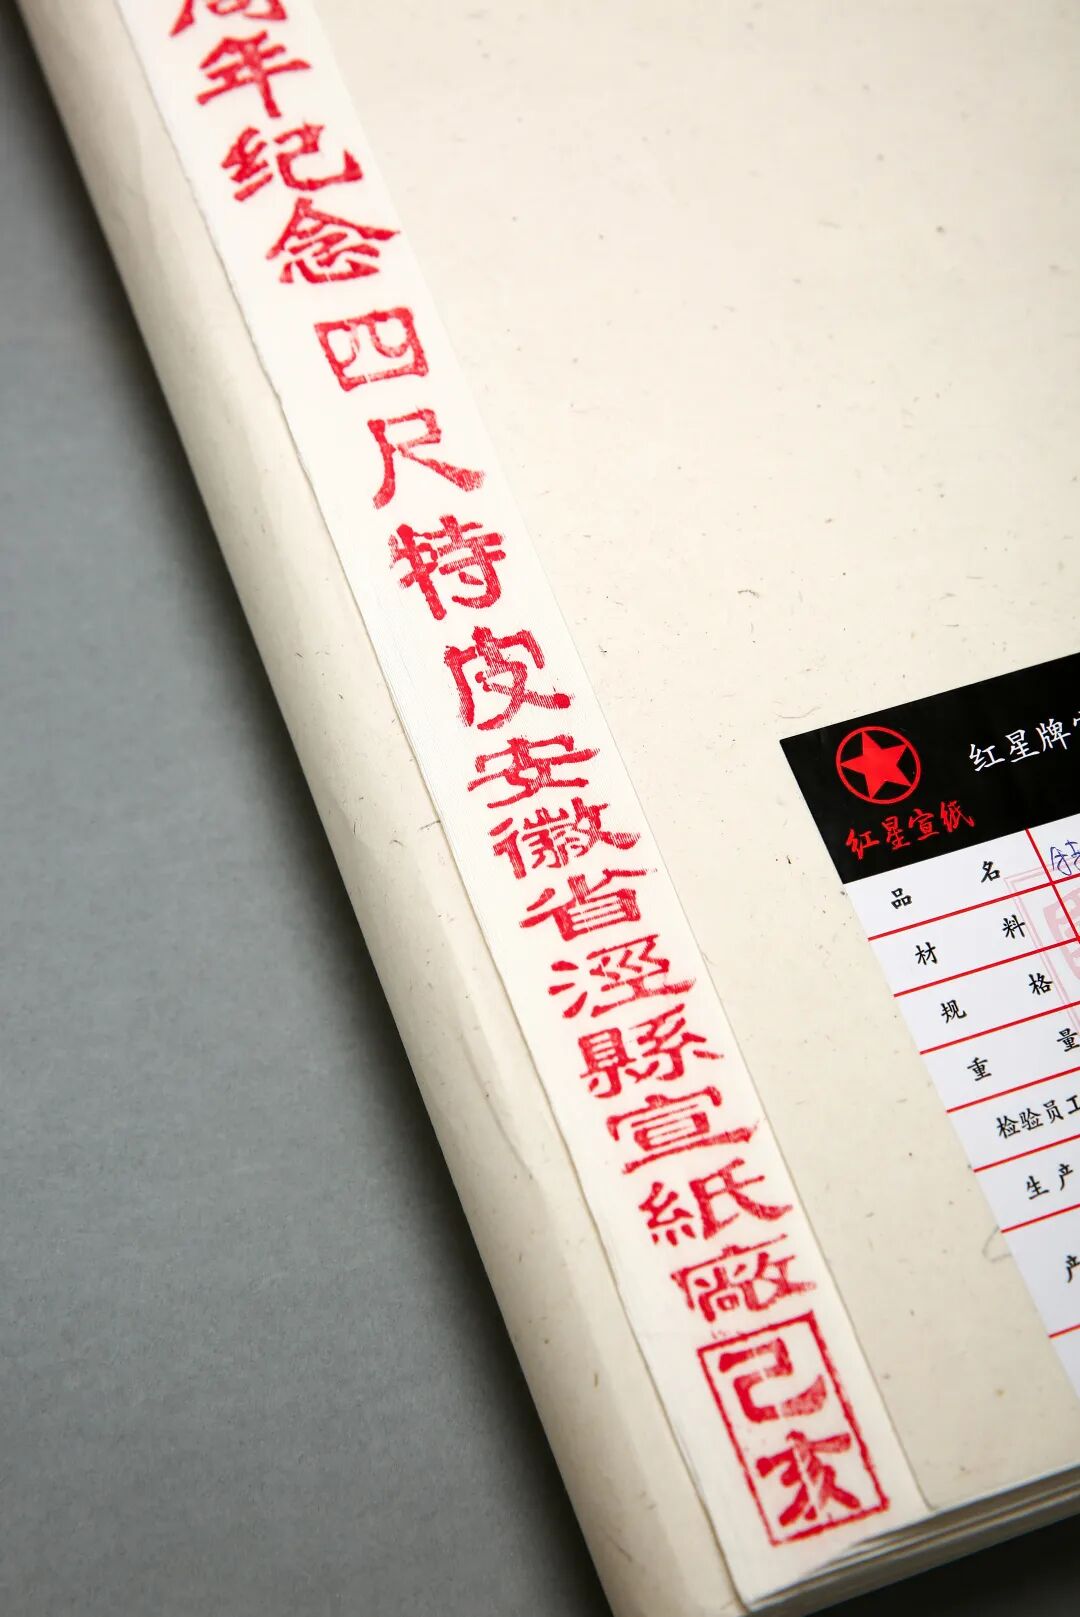 周年纪念四尺特皮安徽省涇縣宣紙廠
己亥
红星牌
红星宣纸
品名
材料
规格
重量
检验员工
生产
产